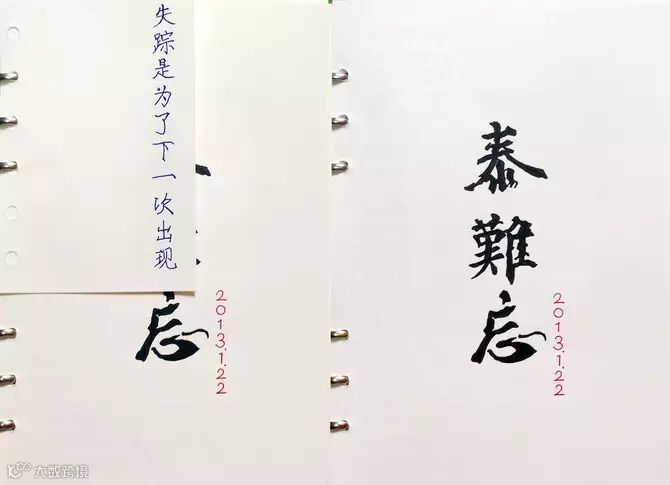 失踪是为了下一次出现
忘
2013.1.22
泰難忘
2013.1.22
大数跨境